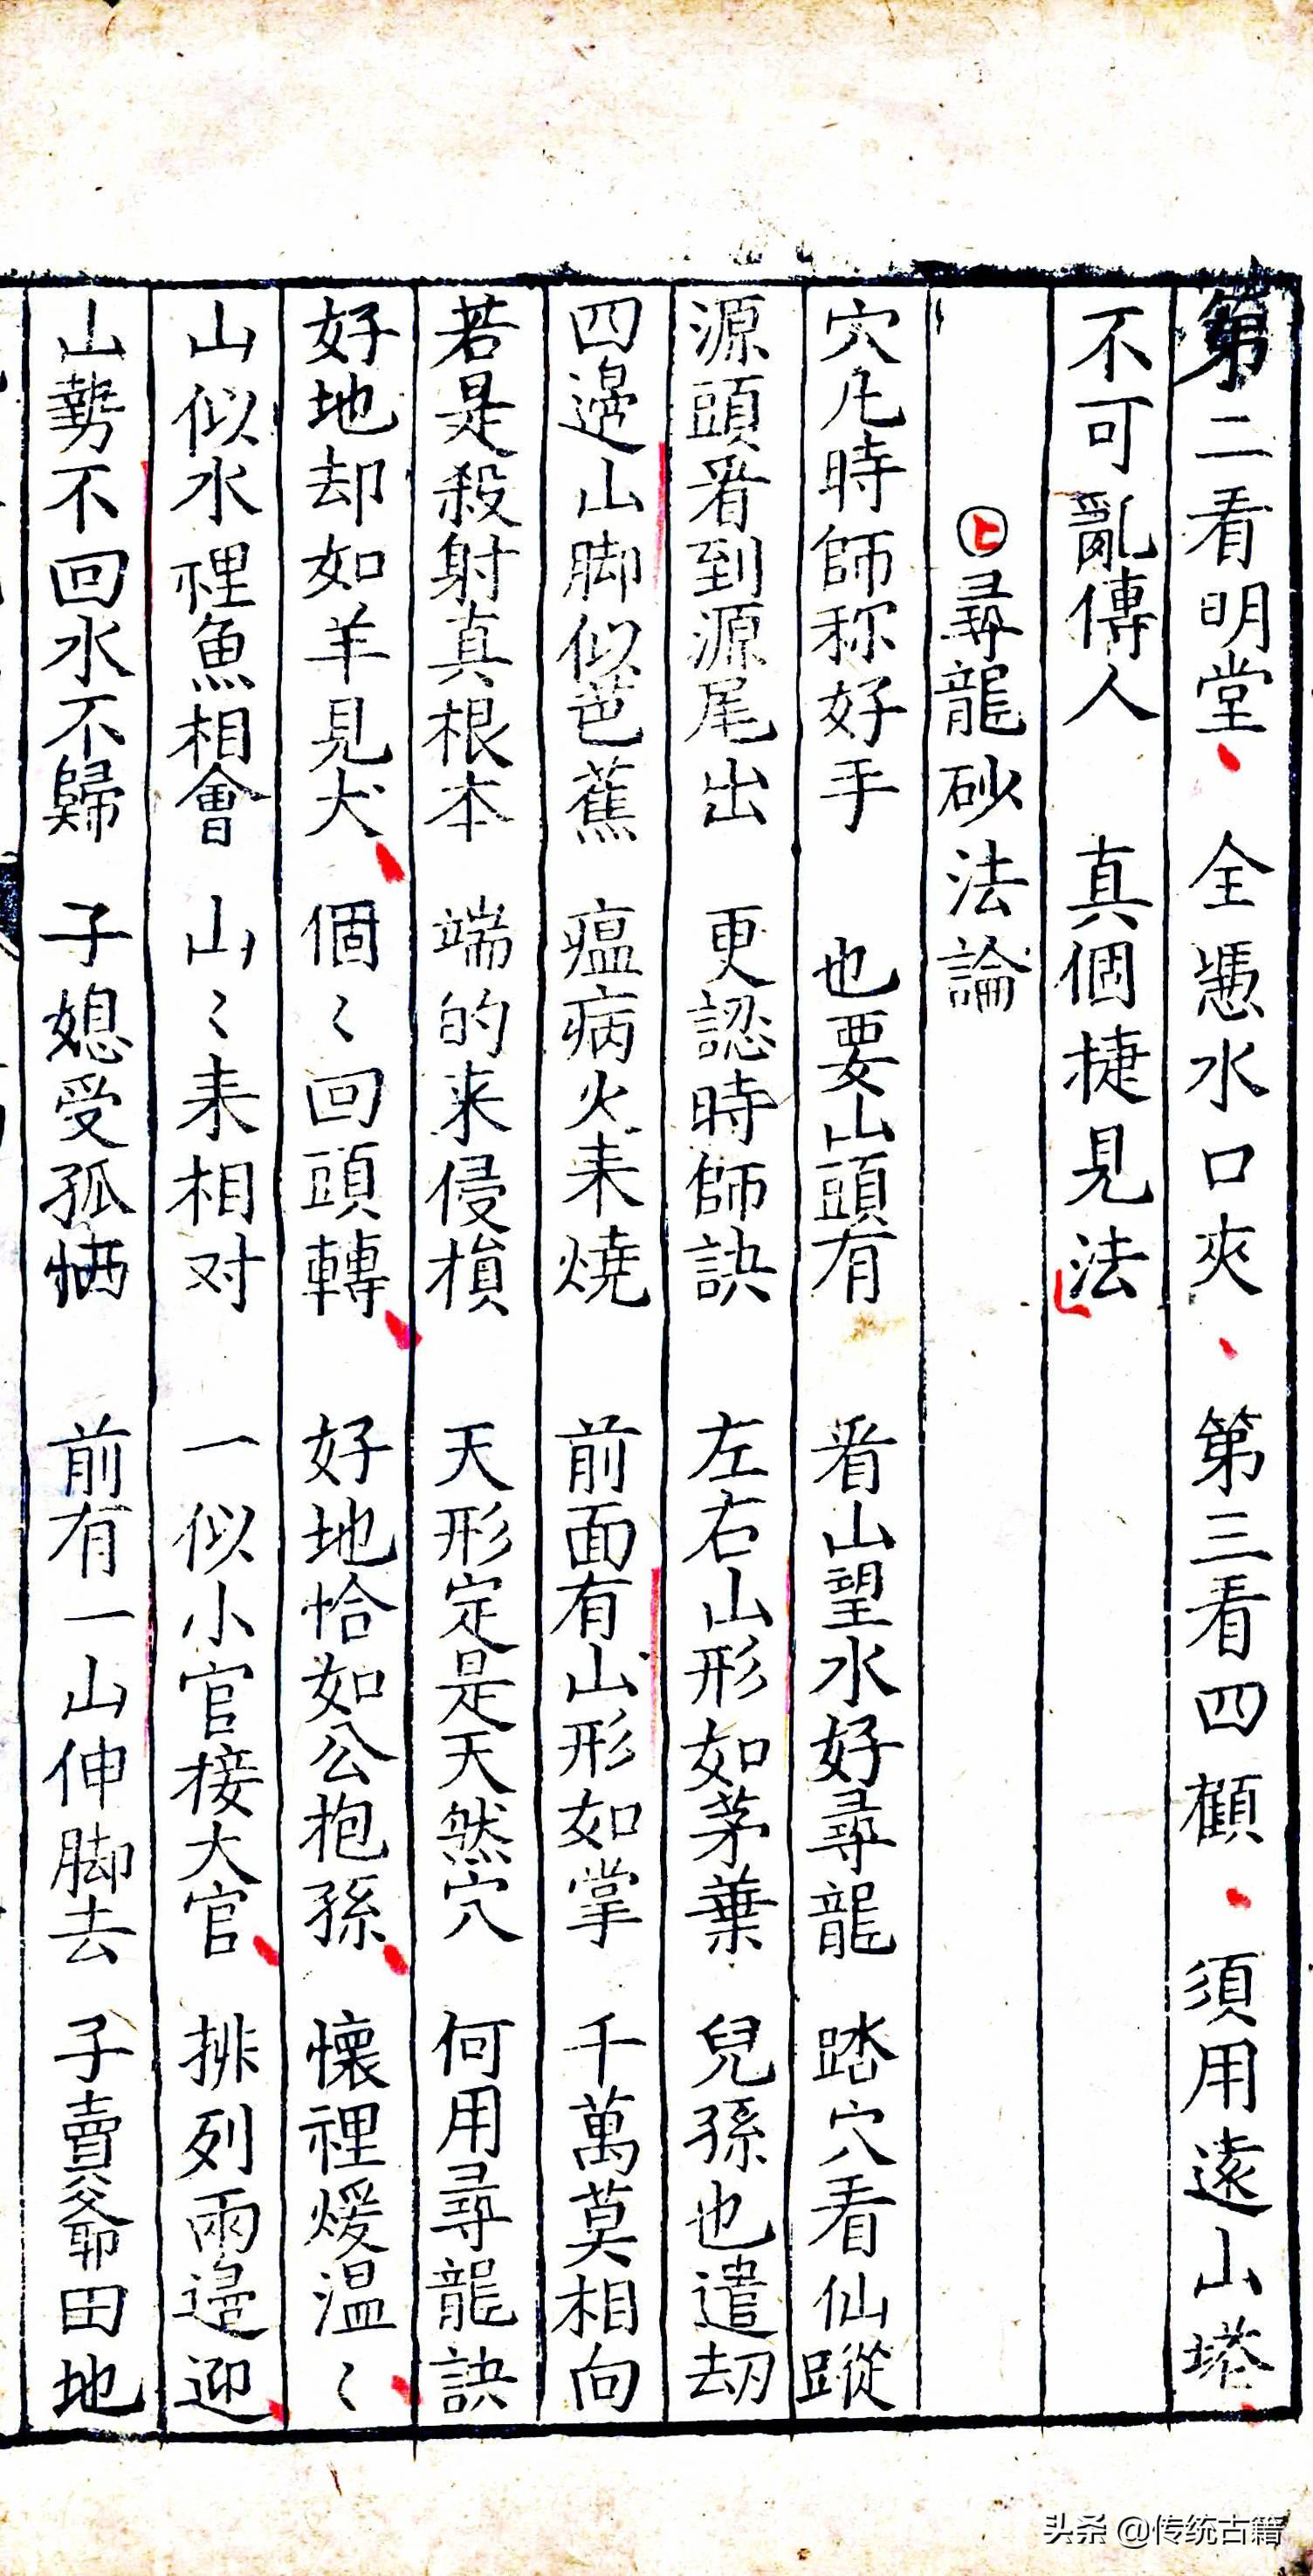 第二看明堂、全凴水口夾、第三看四顧、須用遠山塔、
不可亂傳人 真個捷見法
㊤尋龍砂法論
穴凢時師称好手 也要山頭有 看山望水好尋龍 踏穴看仙蹤
源頭看到源尾出 更認時師訣 左右山形如茅葉 兒孫也遣刼
四邉山脚似芭蕉 瘟病火来燒 前面有山形如掌 千萬莫相向
若是殺射真根本 端的来侵損 天形定是天然穴 何用尋龍訣
好地却如羊見犬、個〻回頭轉、好地恰如公抱孫、懷裡煖温〻、
山似水裡魚相會 山〻来相对 一似小官接大官、排列兩邉迎、
山勢不回水不歸 子媳受孤恓 前有一山伸脚去 子賣爷田地
头条 @传统古籍